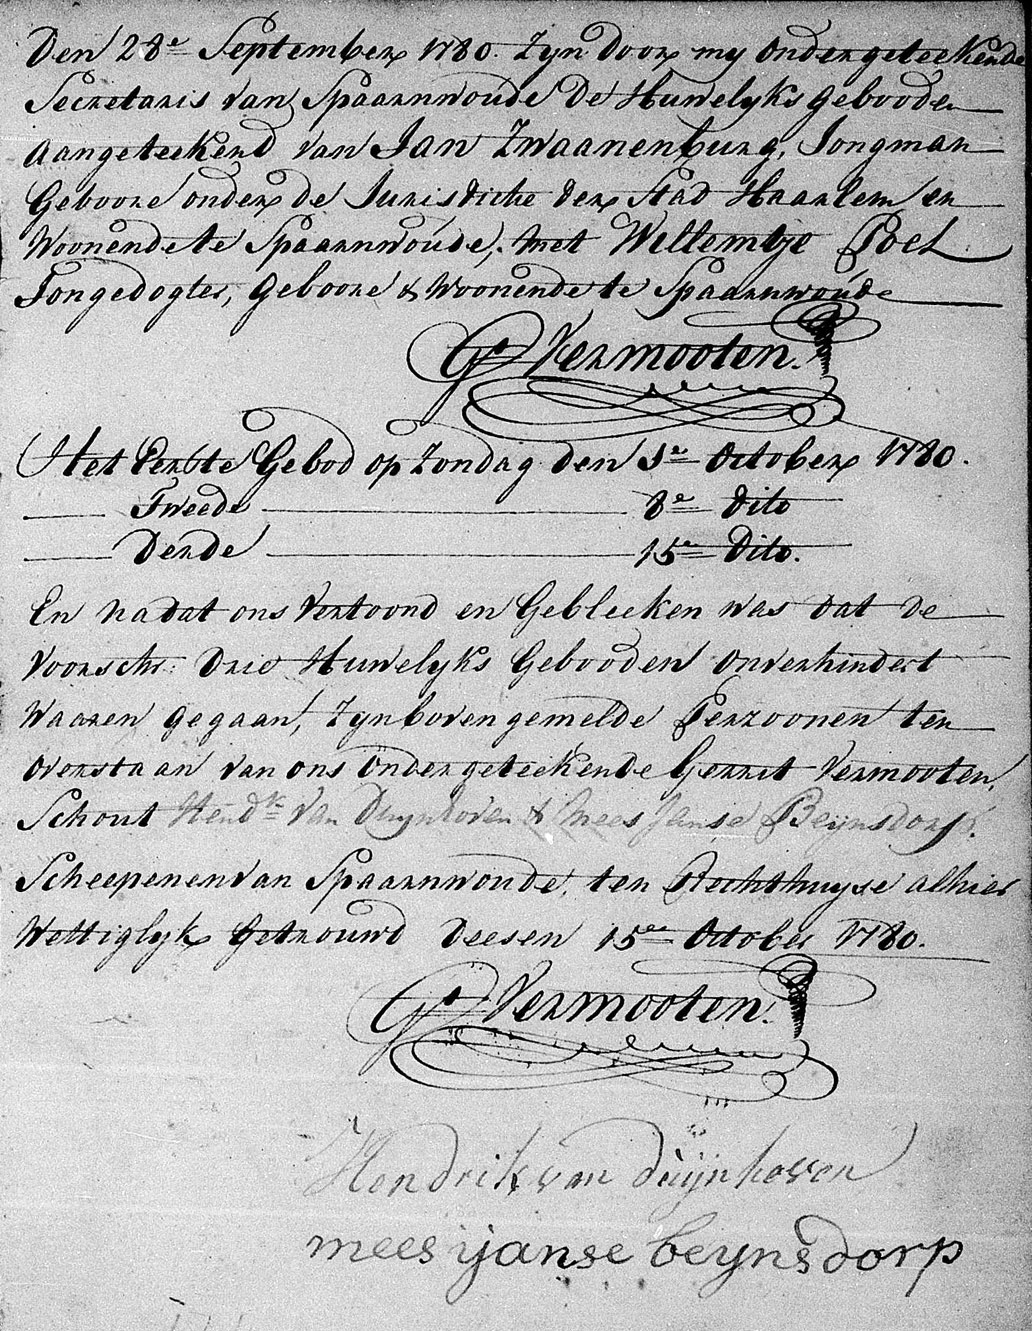 Den 28e September 1780. Zyn door my ondergeteekende
Secretaris van Spaarnwoude de Huwelyks Gebooden
aangeteekend van Jan Zwaanenburg, Jongman
Geboore onder de Jurisdictie der Stad Haarlem en
Woonende te Spaarnwoude, met Willemtje Poel
Jongedogter, Geboore & Woonende te Spaarnwoude
Gt Vermooten.
Het Eerste Gebod op Zondag den 1e October 1780.
Tweede 8e dito
Derde 15e Dito.
En nadat ons Vertoond en Gebleeken was dat de
Voorschr: Drie Huwelyks Gebooden onverhindert
Waaren gegaan, Zyn bovengemelde Perzoonen ten
overstaan van ons ondergeteekende Gerrit Vermooten,
Schout Hendk van Duynhoven & Mees Janse Beynsdorp.
Scheepenen van Spaarnwoude, ten Rechthuyse alhier
Wettiglyk Getrouwd Deesen 15en October 1780.
Gt Vermooten.
Hendrik van duijnhoven
mees ijanse beynsdorp